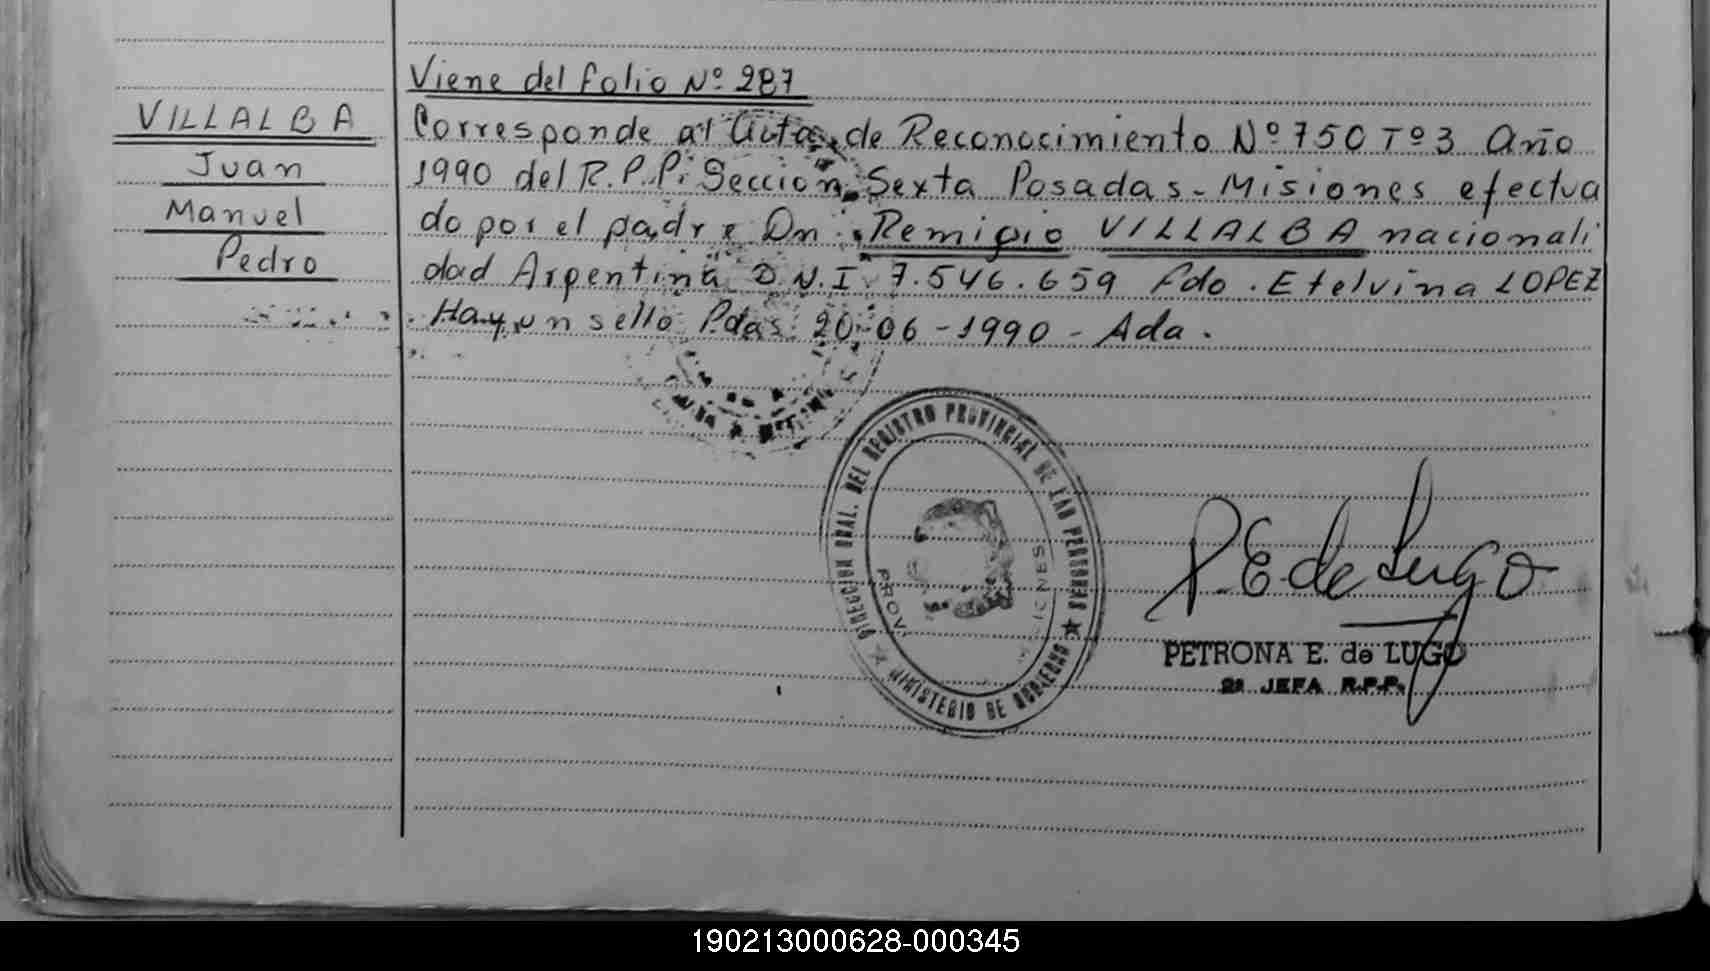 Viene del folio Nº 287
VILLALBA
Juan
Manuel
Pedro
Corresponde al Acta de Reconocimiento Nº 750 Tº 3 Año
1990 del R.P.P. Seccion Sexta Posadas - Misiones efectua
do por el padre Dn. Remigio VILLALBA nacionali
dad Argentina D.N.I 7.546.659 Fdo. Etelvina LOPEZ
Hay un sello Pdas 20-06-1990 - Ada.
DIRECCION GRAL. DEL REGISTRO PROVINCIAL DE LAS PERSONAS
★ MINISTERIO DE GOBIERNO ★
P.E de Lugo
PETRONA E. de LUGO
2ª JEFA R.P.P.
190213000628-000345